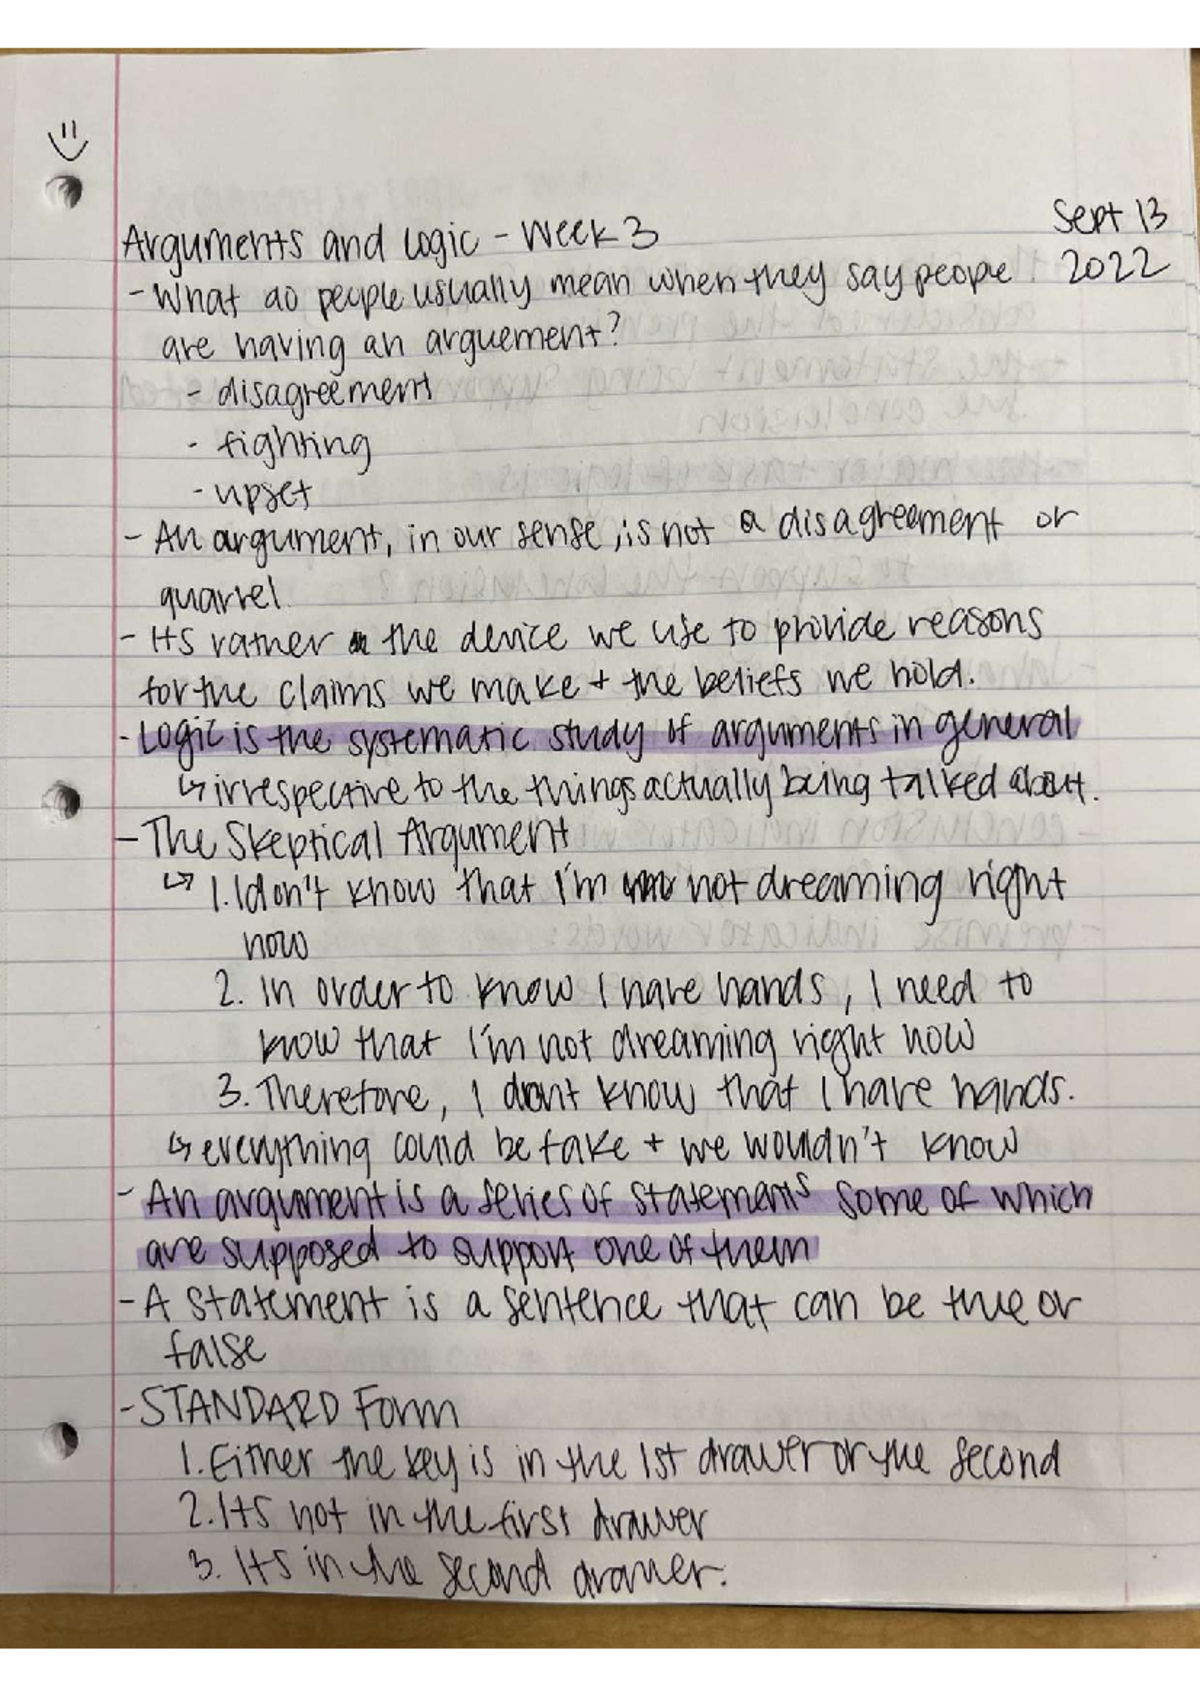 Arguments and Logic - Week 3
Sept 13
2022
- What do people usually mean when they say people
are having an arguement?
- disagreement
- fighting
- upset
- An argument, in our sense, is not a disagreement or
quarrel
- Its rather the device we use to provide reasons
for the claims we make + the beliefs we hold.
- Logic is the systematic study of arguments in general
↳ irrespective to the things actually being talked about.
- The Skeptical Argument
↳ 1. I don't know that I'm not dreaming right
now
2. In order to know I have hands, I need to
know that I'm not dreaming right now
3. Therefore, I dont know that I have hands.
↳ everything could be fake + we wouldn't know
- An argument is a series of statements some of which
are supposed to support one of them
- A statement is a sentence that can be true or
false
- STANDARD Form
1. Either the key is in the 1st drawer or the second
2. Its not in the first drawer
3. Its in the second drawer.